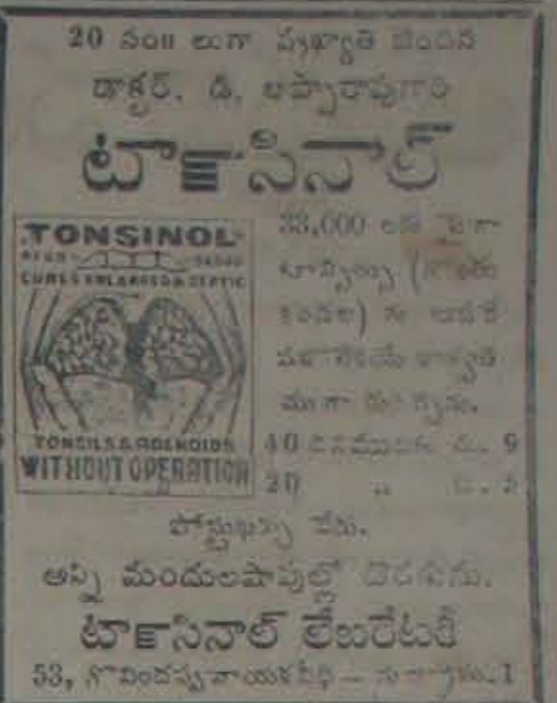 20 సం॥ లుగా ప్రఖ్యాతి జెందిన
డాక్టర్. డి. అప్పారావుగారి
టాన్సినాల్
TONSINOL
REGD
CURES ENLARGED & SEPTIC
TONSILS & ADENOIDS
WITHOUT OPERATION
33,000 లకు పైగా
టాన్సిల్సు (గొంతు
40 దినములకు రు. 9
20 ,,
పోస్టుఖర్చు వేరు.
అన్ని మందులషాపుల్లో దొరకును.
టాన్సినాల్ లేబరేటరీ
53, గోవిందప్పనాయకవీధి – మద్రాసు-1